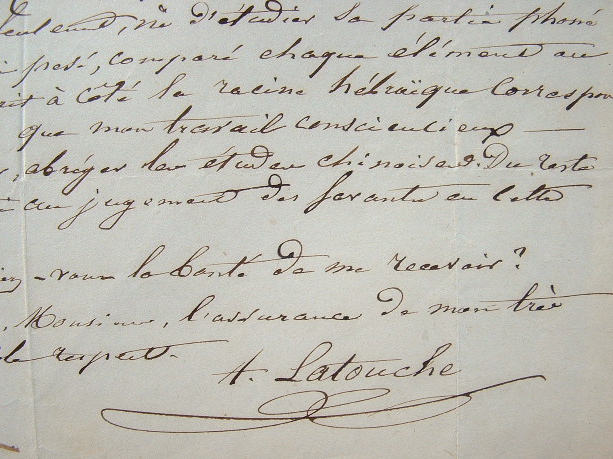 seulement, ni d'étudier sa partie phoné
posé, comparé chaque élément au
rit à côté la racine hébraïque Correspon
que mon travail consciencieux —
abréger les études chinoises. Du reste
au jugement des savants en cette
-vous la bonté de me recevoir?
Monsieur, l'assurance de mon très
respect.
A. Latouche